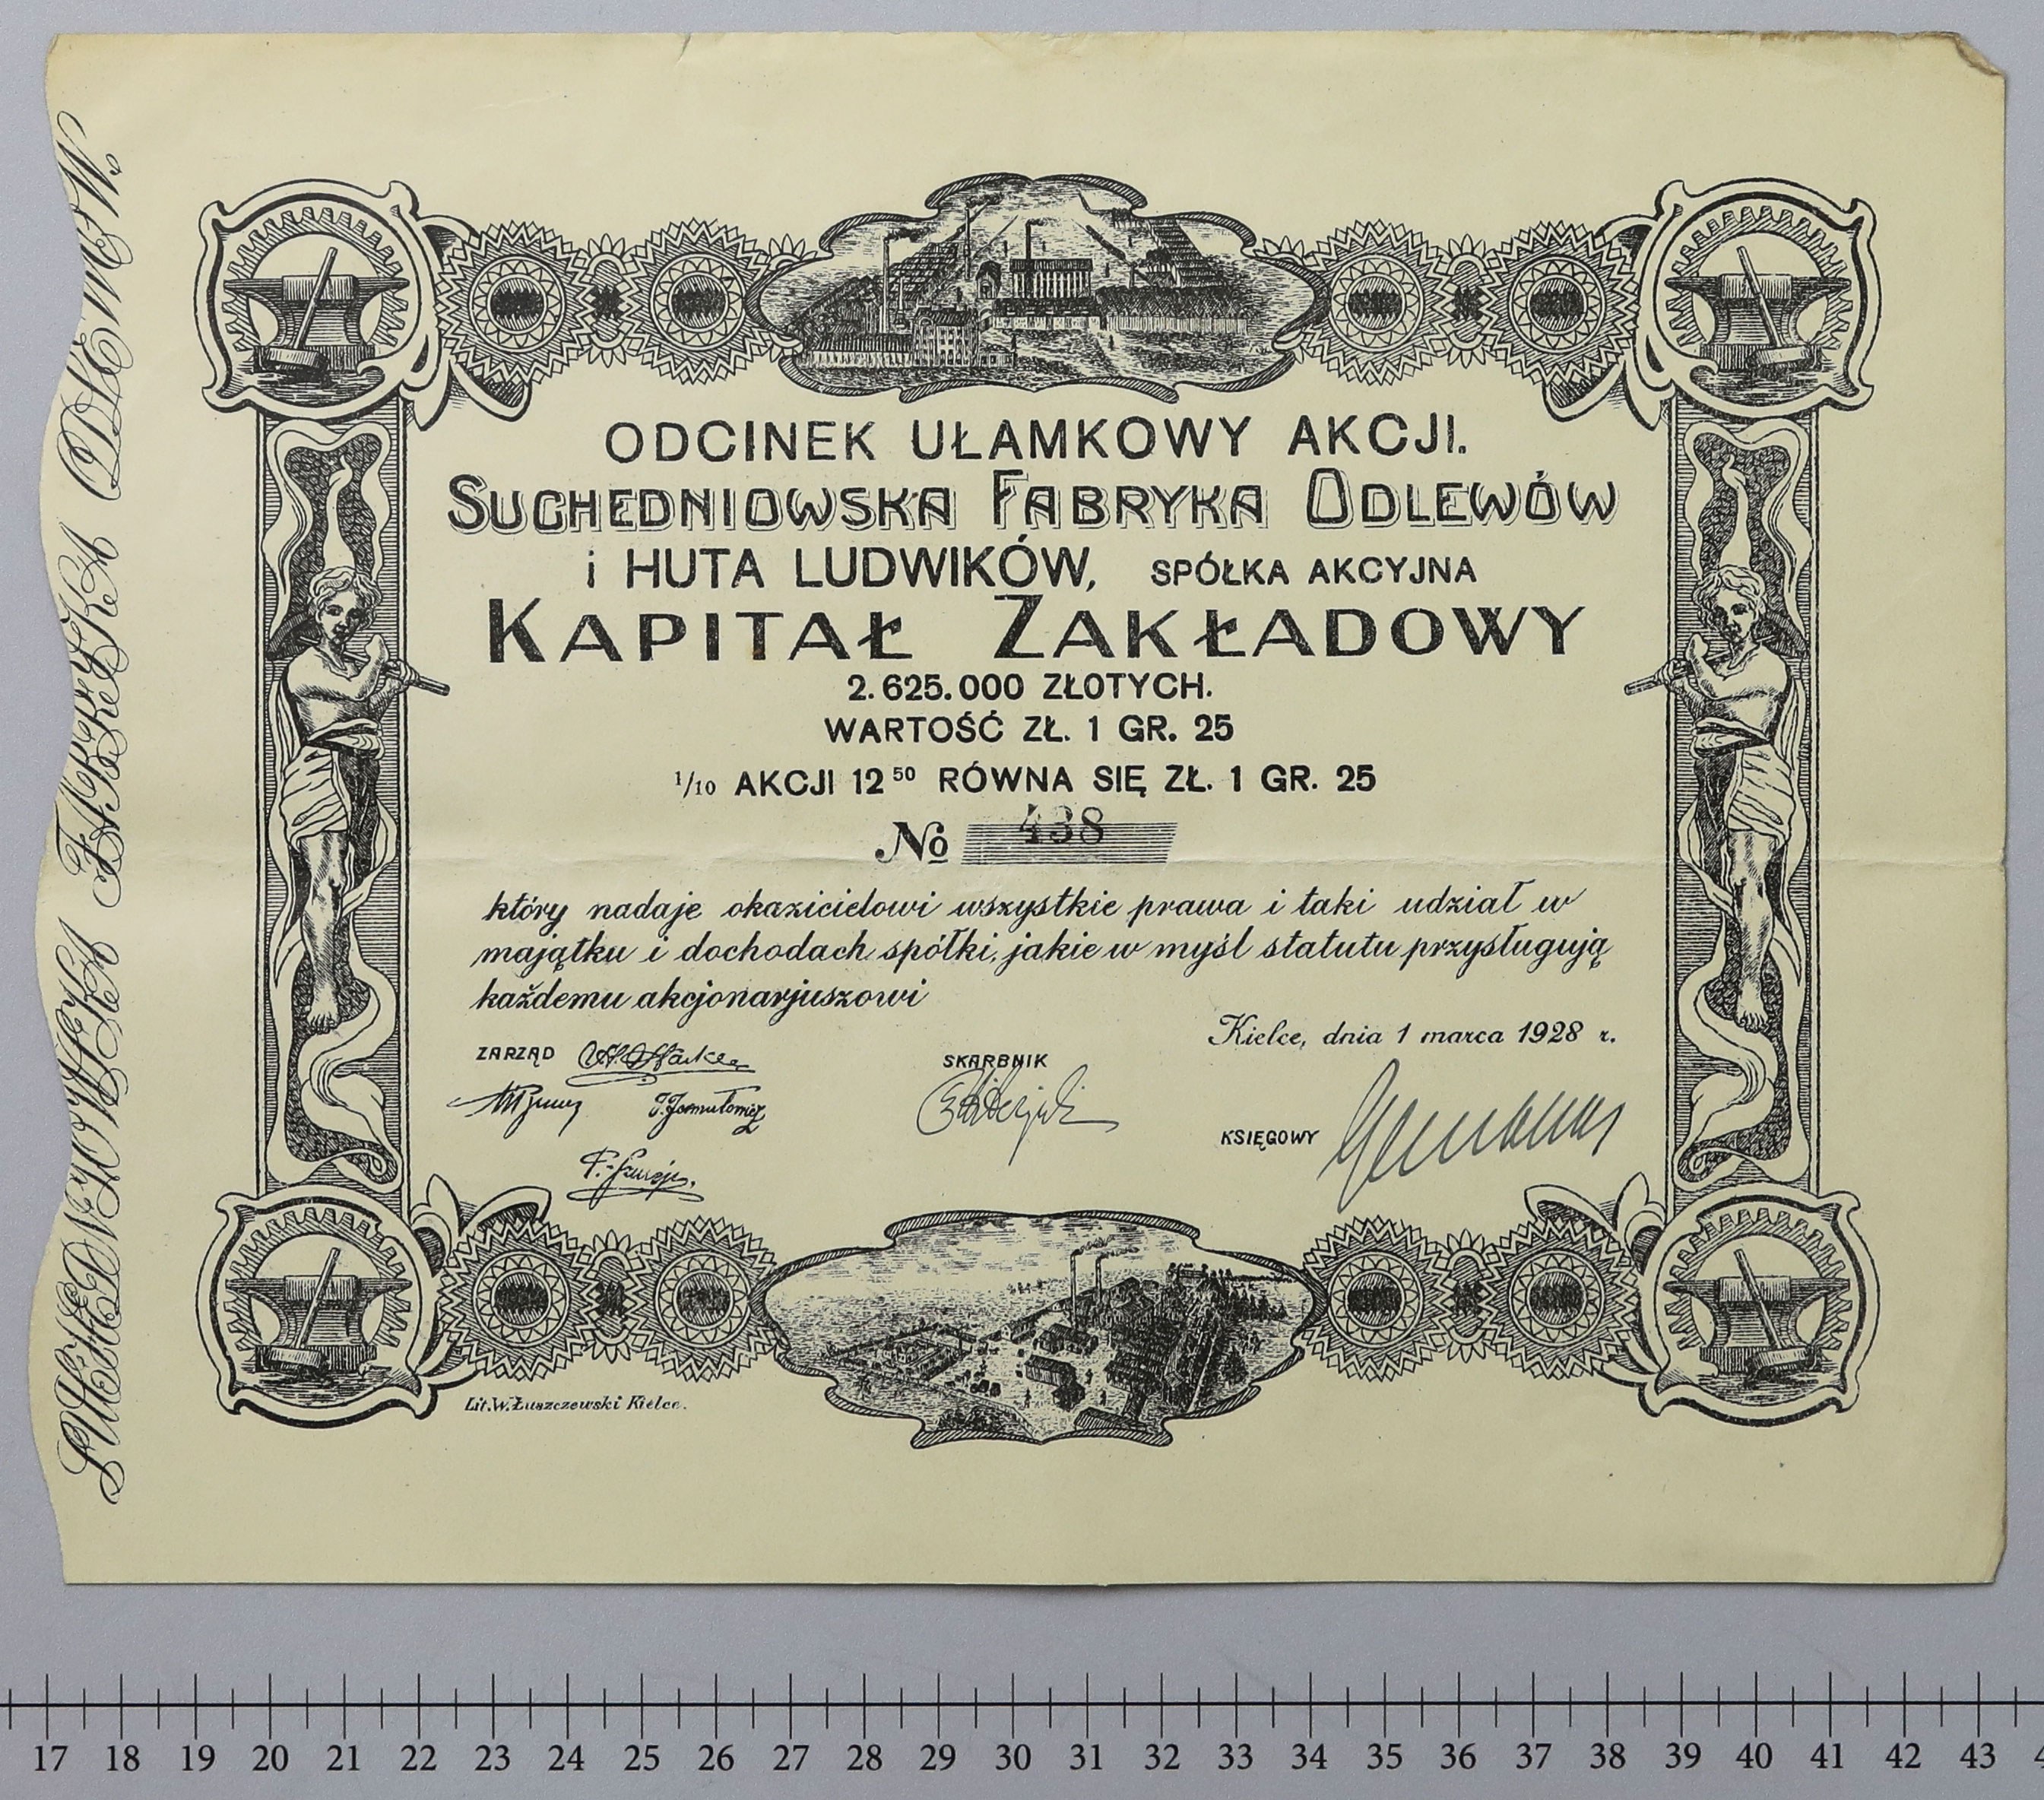 SUCHEDNIOWSKA FABRYKA ODLEWÓW.
ODCINEK UŁAMKOWY AKCJI.
SUCHEDNIOWSKA FABRYKA ODLEWÓW
i HUTA LUDWIKÓW, SPÓŁKA AKCYJNA
KAPITAŁ ZAKŁADOWY
2.625.000 ZŁOTYCH.
WARTOŚĆ ZŁ. 1 GR. 25
1/10 AKCJI 12 50 RÓWNA SIĘ ZŁ. 1 GR. 25
No 438
który nadaje okazicielowi wszystkie prawa i taki udział w
majątku i dochodach spółki, jakie w myśl statutu przysługują
każdemu akcjonarjuszowi
Kielce, dnia 1 marca 1928 r.
ZARZĄD
SKARBNIK
KSIĘGOWY
Lit. W. Łuszczewski Kielce.
17 18 19 20 21 22 23 24 25 26 27 28 29 30 31 32 33 34 35 36 37 38 39 40 41 42 43